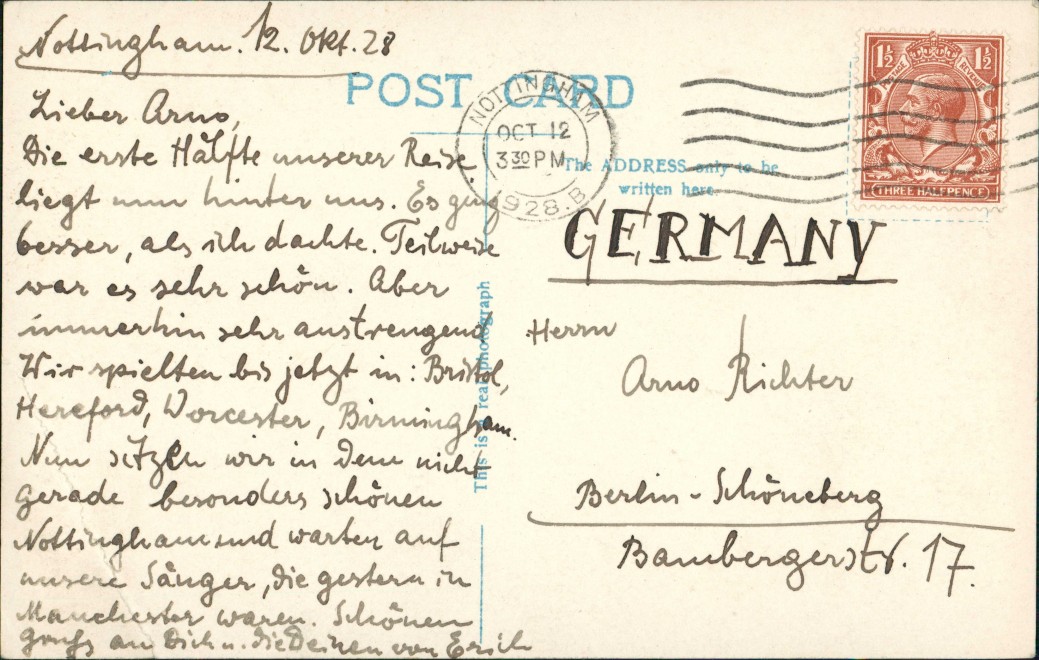 Nottingham. 12. Okt. 28
Lieber Arno,
Die erste Hälfte unserer Reise
liegt nun hinter uns. Es ging
besser, als ich dachte. Teilweise
war es sehr schön. Aber
immerhin sehr anstrengend
Wir spielten bis jetzt in: Bristol,
Hereford, Worcester, Birmingham.
Nun sitzen wir in dem nicht
gerade besonders schönen
Nottingham und warten auf
unsere Sänger, die gestern in
Manchester waren. Schönen
Gruß an Dich u. die Deinen von Erich
POST CARD
The ADDRESS only to be
written here
This is a real photograph
NOTTINGHAM
OCT 12
3 30 PM
1928.B
1½ 1½
POSTAGE REVENUE
THREE HALFPENCE
GERMANY
Herrn
Arno Richter
Berlin-Schöneberg
Bambergerstr. 17.